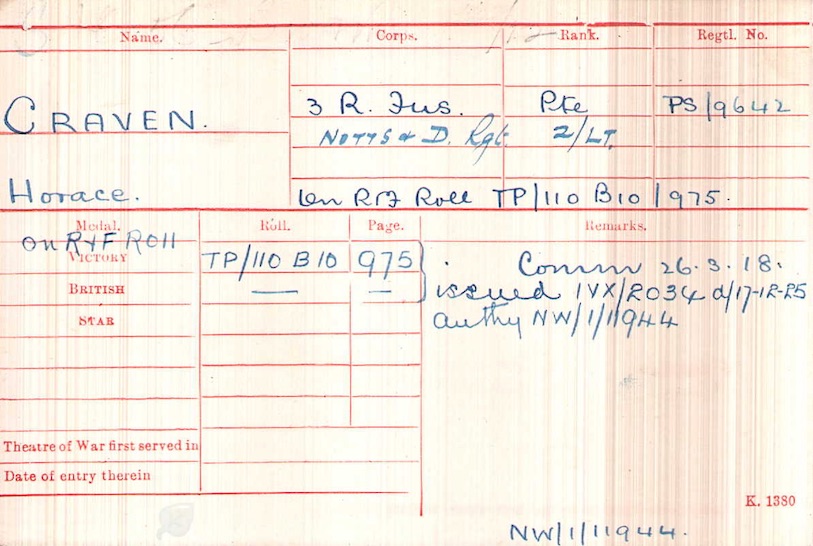 Name. Corps. Rank. Regtl. No.
CRAVEN. 3 R. Fus. Pte PS/9642
NOTTS & D. Rgt. 2/LT.
Horace. On R & F Roll TP/110 B10/975.
Medal. Roll. Page. Remarks.
on R & F ROll
VICTORY TP/110 B 10 975 Comm 26.3.18.
BRITISH — — issued IVX/2034 d/17-12-25
STAR authy NW/1/11944
Theatre of War first served in
Date of entry therein
K. 1380
NW/1/11944.